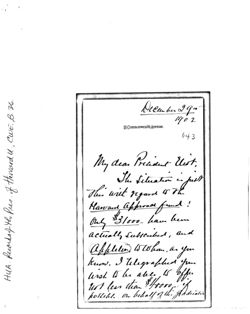 December 29th
1902
12 Commonwealth Avenue
643
My dear President Eliot,
The situation is just
this with regard to the
Harvard Approach fund:
Only $31000 have been
actually subscribed, and
Appleton to whom, as you
know, I telegraphed you
wish to be able to offer
not less than
possible. on behalf of the
HUA Records of the Pres. of Harvard U., CWE, B. 26